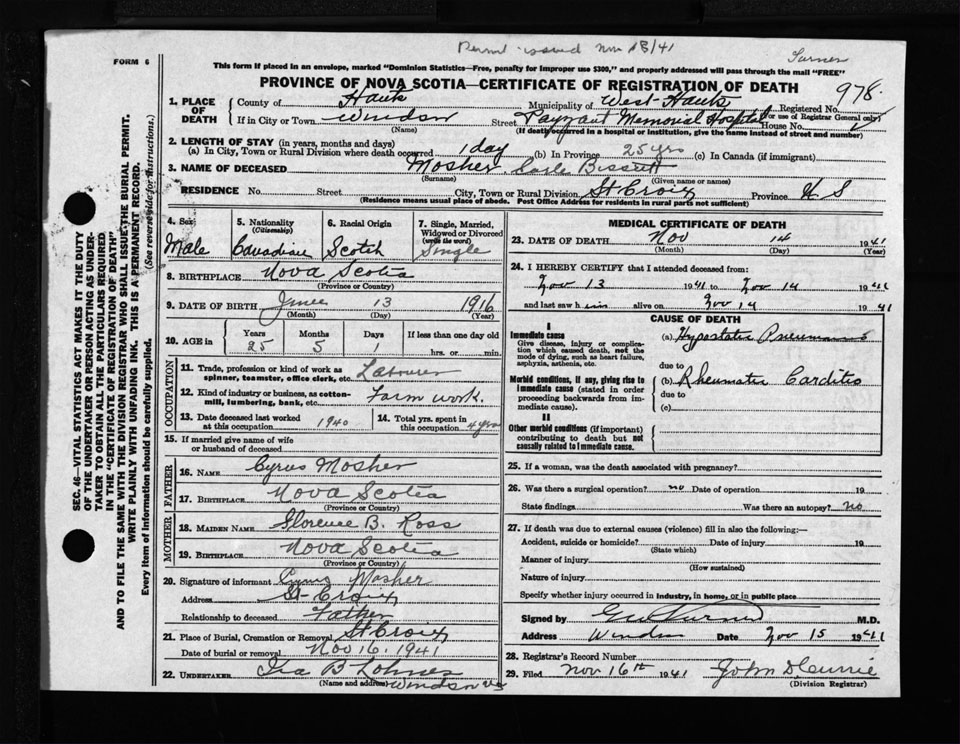 Permit issued Nov 18/41
Turner
FORM 6
This form if placed in an envelope, marked "Dominion Statistics—Free, penalty for improper use $300," and properly addressed will pass through the mail "FREE"
PROVINCE OF NOVA SCOTIA—CERTIFICATE OF REGISTRATION OF DEATH
978
1. PLACE OF DEATH
County of Hants Municipality of West Hants Registered No.
(For use of Registrar General only)
If in City or Town Windsor Street Payzant Memorial Hospital House No.
(Name) (If death occurred in a hospital or institution, give the name instead of street and number)
2. LENGTH OF STAY (in years, months and days)
(a) In City, Town or Rural Division where death occurred 1 day (b) In Province 25 yrs (c) In Canada (if immigrant)
3. NAME OF DECEASED Mosher
(Surname) (Given name or names)
RESIDENCE No. Street City, Town or Rural Division St Croix Province N S
(Residence means usual place of abode. Post Office Address for residents in rural parts not sufficient)
4. Sex Male
5. Nationality (Citizenship) Canadian
6. Racial Origin Scotch
7. Single, Married, Widowed or Divorced (write the word) Single
8. BIRTHPLACE Nova Scotia
(Province or Country)
9. DATE OF BIRTH June 13 1916
(Month) (Day) (Year)
10. AGE in Years 25 Months 5 Days 1 If less than one day old
hrs. or min.
OCCUPATION
11. Trade, profession or kind of work as spinner, teamster, office clerk, etc. Labourer
12. Kind of industry or business, as cotton-mill, lumbering, bank, etc. Farm work.
13. Date deceased last worked at this occupation 1940
14. Total yrs. spent in this occupation 4 yrs
15. If married give name of wife or husband of deceased
FATHER
16. NAME Cyrus Mosher
17. BIRTHPLACE Nova Scotia
(Province or Country)
MOTHER
18. MAIDEN NAME Florence B. Ross
19. BIRTHPLACE Nova Scotia
(Province or Country)
20. Signature of informant Cyrus Mosher
Address St-Croix
Relationship to deceased Father
21. Place of Burial, Cremation or Removal St Croix
Date of burial or removal Nov 16, 1941
22. UNDERTAKER Ira B
(Name and address) Windsor NS
MEDICAL CERTIFICATE OF DEATH
23. DATE OF DEATH Nov 14 1941
(Month) (Day) (Year)
24. I HEREBY CERTIFY that I attended deceased from:
Nov 13 1941 to Nov 14 1941
and last saw him alive on Nov 14 1941
CAUSE OF DEATH
I
Immediate cause
Give disease, injury or complication which caused death, not the mode of dying, such as heart failure, asphyxia, asthenia, etc.
(a) Hypostatic Pneumonia
due to
Morbid conditions, if any, giving rise to immediate cause (stated in order proceeding backwards from immediate cause).
(b) Rheumatic Carditis
due to
(c)
II
Other morbid conditions (if important) contributing to death but not causally related to immediate cause.
25. If a woman, was the death associated with pregnancy?
26. Was there a surgical operation? no Date of operation 19
State findings Was there an autopsy? no
27. If death was due to external causes (violence) fill in also the following:—
Accident, suicide or homicide? Date of injury 19
(State which)
Manner of injury
(How sustained)
Nature of injury
Specify whether injury occurred in industry, in home, or in public place
Signed by Turner M.D.
Address Windsor Date Nov 15 1941
28. Registrar's Record Number
29. Filed Nov 16th 1941 John
(Division Registrar)
SEC. 46—VITAL STATISTICS ACT MAKES IT THE DUTY
OF THE UNDERTAKER OR PERSON ACTING AS UNDER-
TAKER TO OBTAIN ALL THE PARTICULARS REQUIRED
IN THE "CERTIFICATE OF REGISTRATION OF DEATH"
AND TO FILE THE SAME WITH THE DIVISION REGISTRAR WHO SHALL ISSUE THE BURIAL PERMIT.
WRITE PLAINLY WITH UNFADING INK. THIS IS A PERMANENT RECORD.
Every item of information should be carefully supplied. (See reverse side for instructions.)